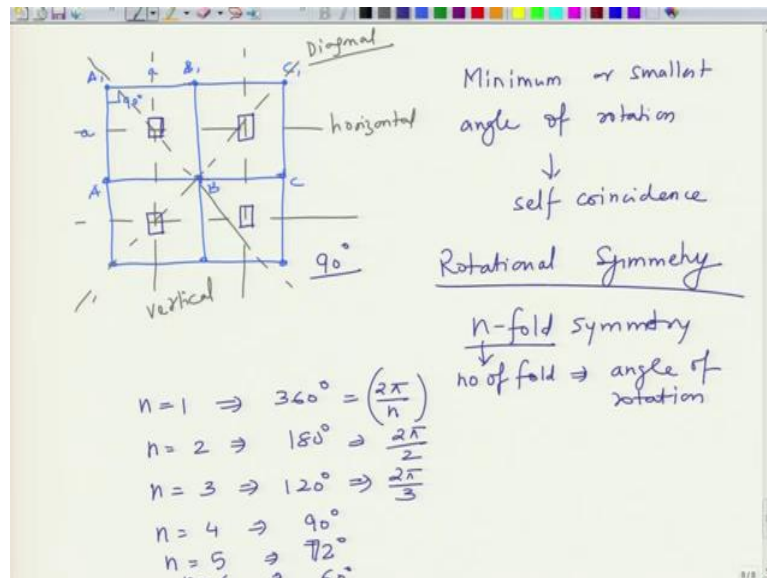 Diagonal
A₁ a B₁ C₁
90°
a
horizontal
A B C
90°
vertical
Minimum or smallest
angle of rotation
↓
self coincidence
Rotational Symmetry
n-fold symmetry
↓
no of fold ⇒ angle of
rotation
n = 1 ⇒ 360° = (2π/n)
n = 2 ⇒ 180° ⇒ 2π/2
n = 3 ⇒ 120° ⇒ 2π/3
n = 4 ⇒ 90°
n = 5 ⇒ 72°